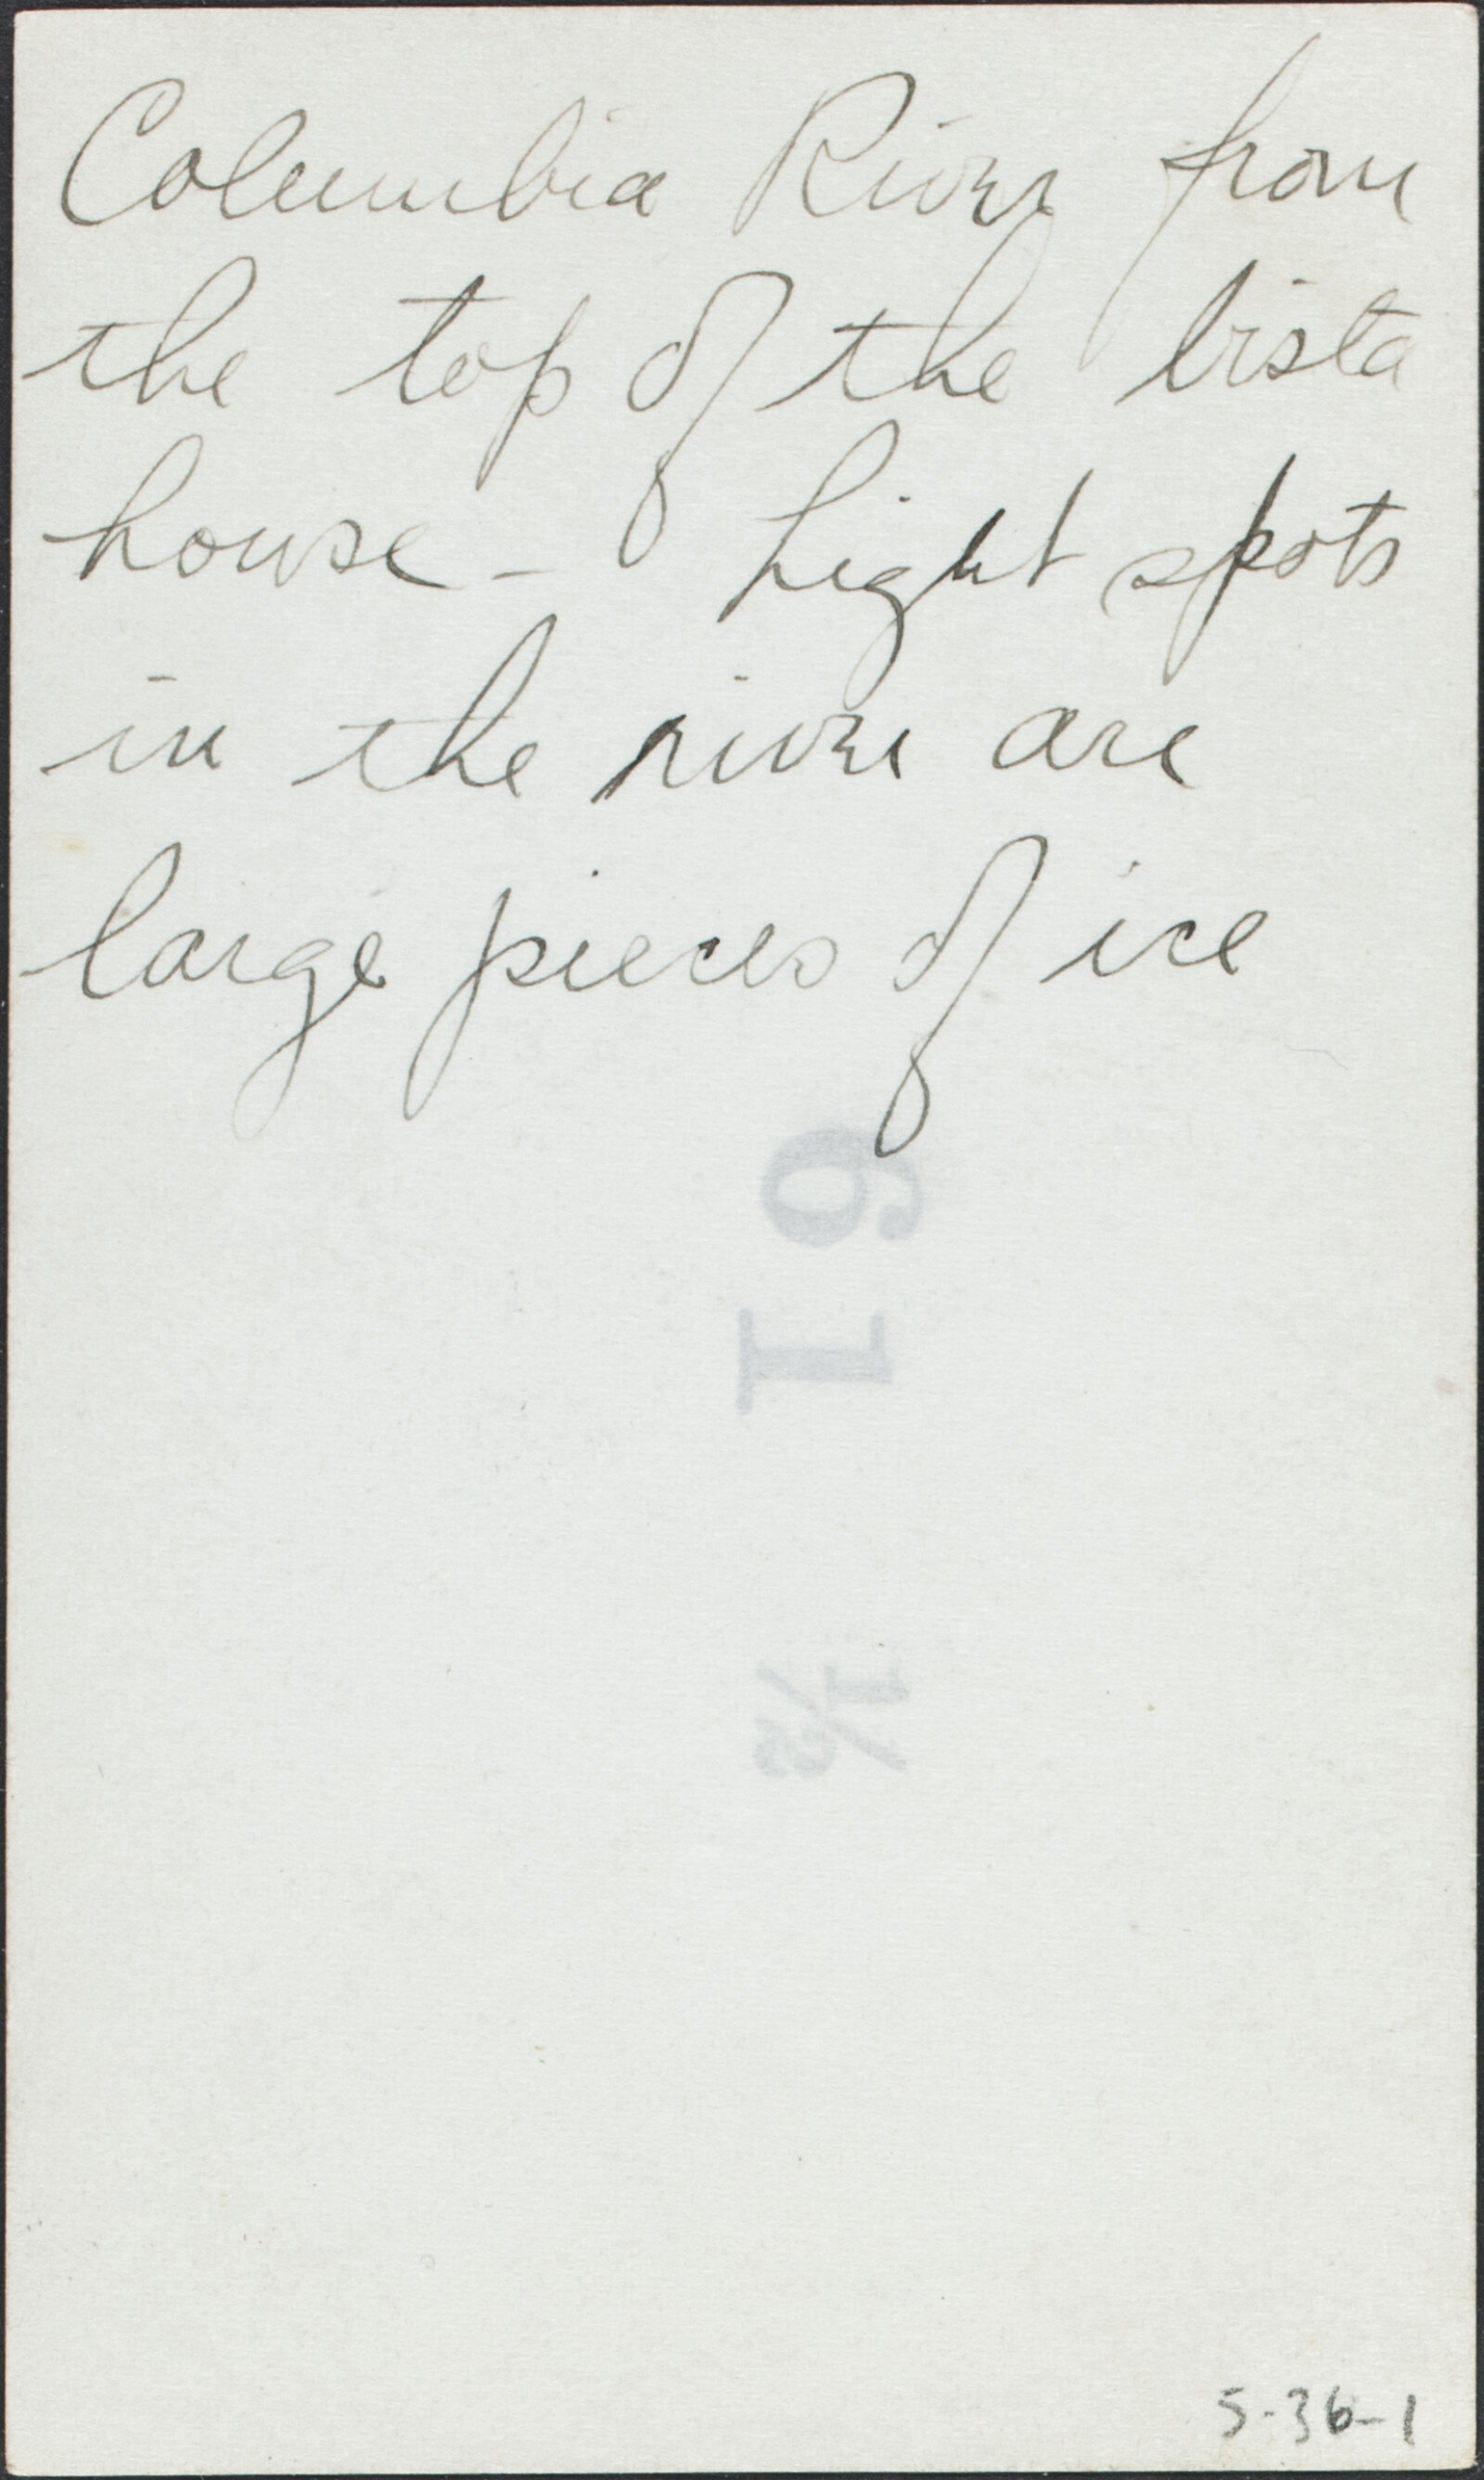 Columbia River from
the top of the vista
house - Light spots
in the river are
large pieces of ice
61
5-36-1